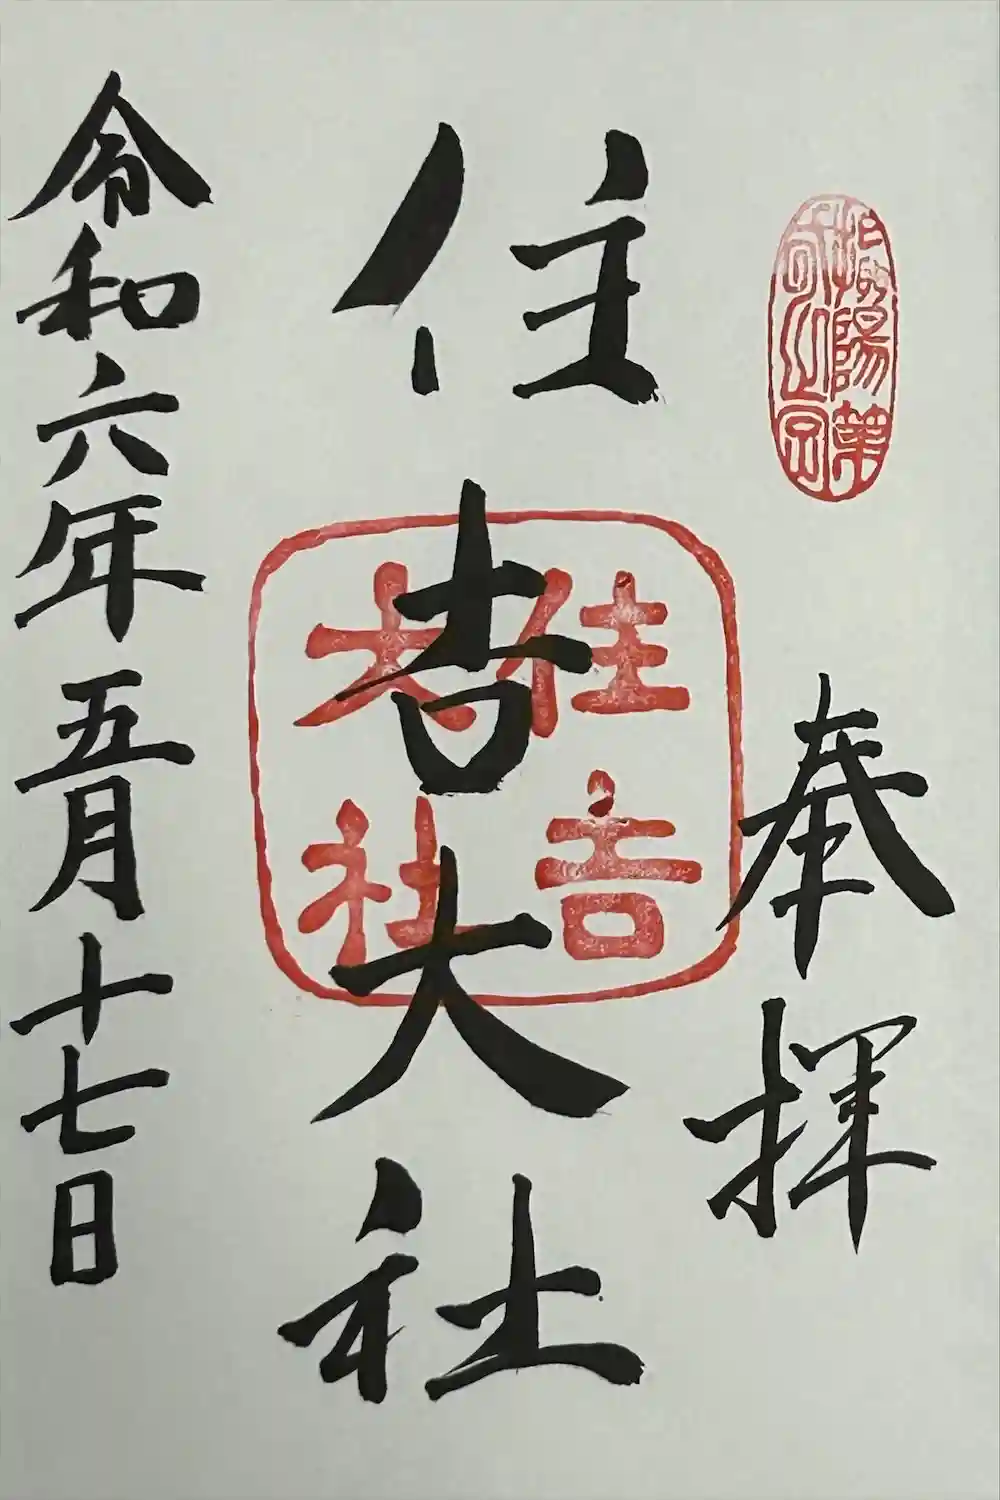 奉拝
住吉大社
住吉
大社
令和六年五月十七日